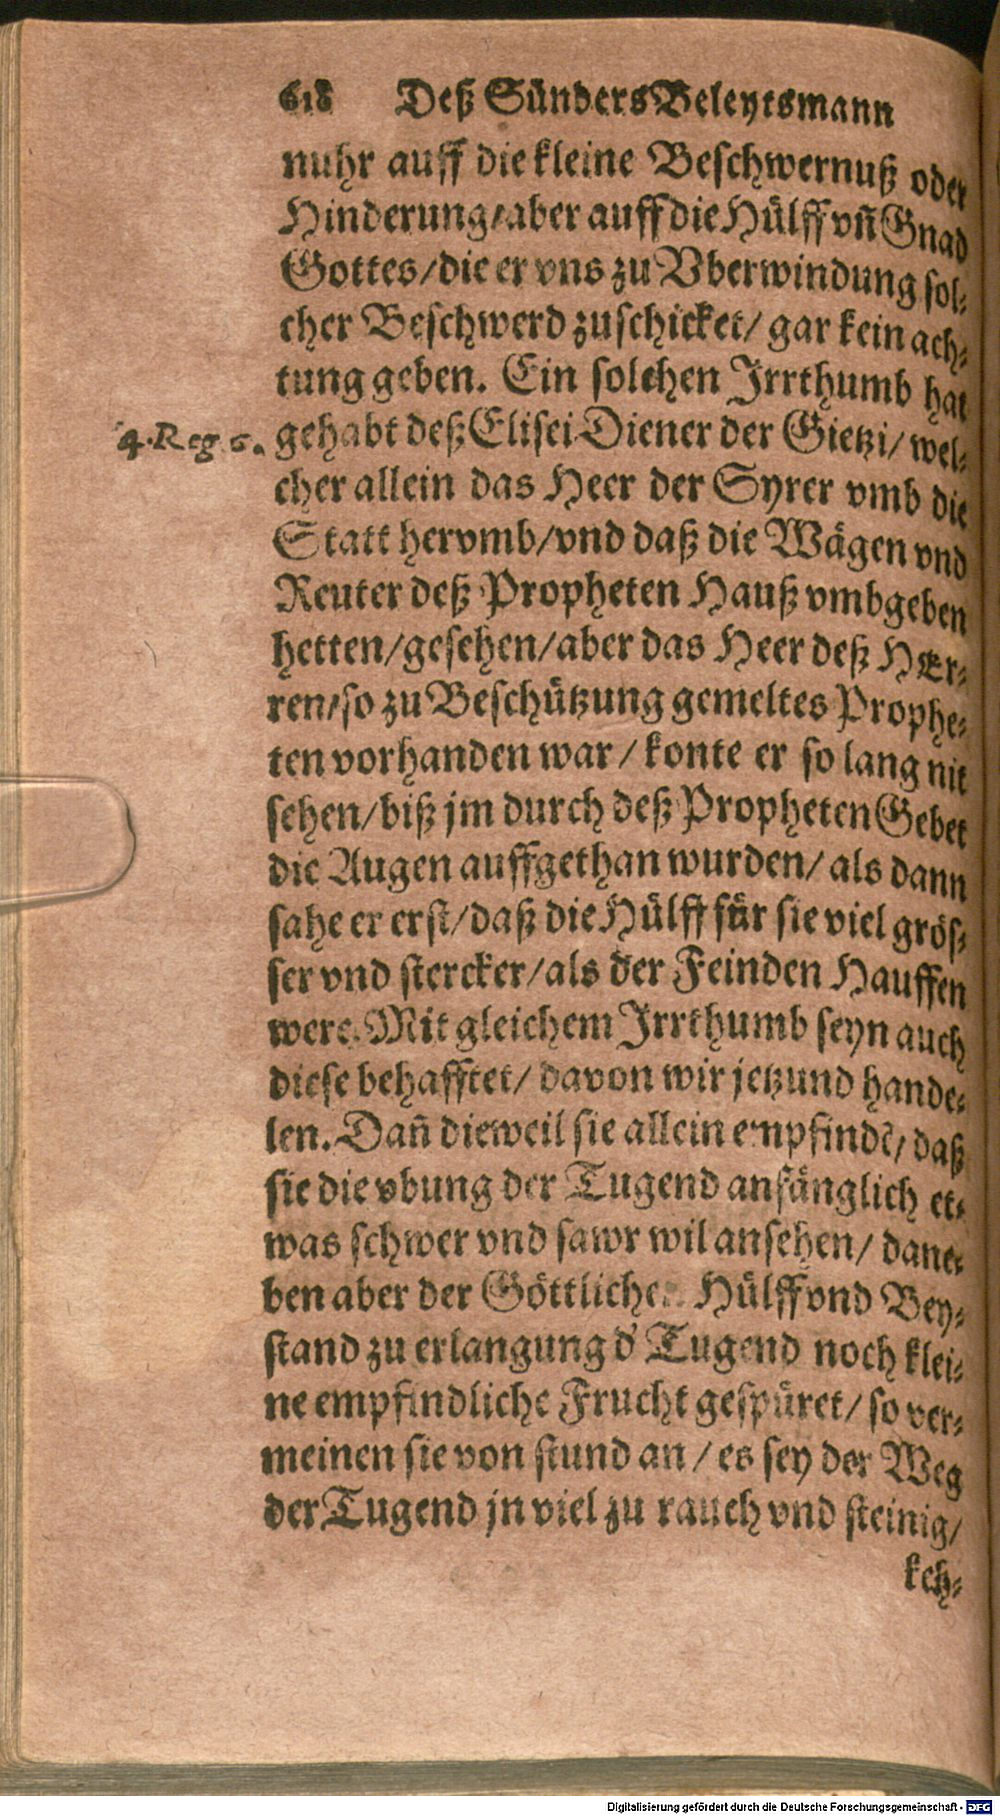 618 Deß Sünders Beleytsmann
nuhr auff die kleine Beschwernuß oder
Hinderung/aber auff die Hülff vñ Gnad
Gottes/die er vns zu Vberwindung sol⸗
cher Beschwerd zuschicket/ gar kein ach⸗
tung geben. Ein solchen Irrthumb hat
4. Reg. 6. gehabt deß Elisei Diener der Gietzi/ wel⸗
cher allein das Heer der Syrer vmb die
Statt hervmb/vnd daß die Wägen vnd
Reuter deß Propheten Hauß vmbgeben
hetten/gesehen/aber das Heer deß HEr⸗
ren/so zu Beschützung gemeltes Prophe⸗
ten vorhanden war/ konte er so lang nit
sehen/biß jm durch deß Propheten Gebet
die Augen auffgethan wurden/ als dann
sahe er erst/daß die Hülff für sie viel grös⸗
ser vnd stercker/als der Feinden Hauffen
were. Mit gleichem Irrthumb seyn auch
diese behafftet/ davon wir jetzund hande⸗
len. Dañ dieweil sie allein empfindē/ daß
sie die vbung der Tugend anfänglich et⸗
was schwer vnd sawr wil ansehen/ dane⸗
ben aber der Göttlichen Hülff vnd Bey⸗
stand zu erlangung d' Tugend noch klei⸗
ne empfindliche Frucht gespüret/ so ver⸗
meinen sie von stund an/ es sey der Weg
der Tugend jn viel zu rauch vnd steinig/
keh⸗
Digitalisierung gefördert durch die Deutsche Forschungsgemeinschaft - DFG